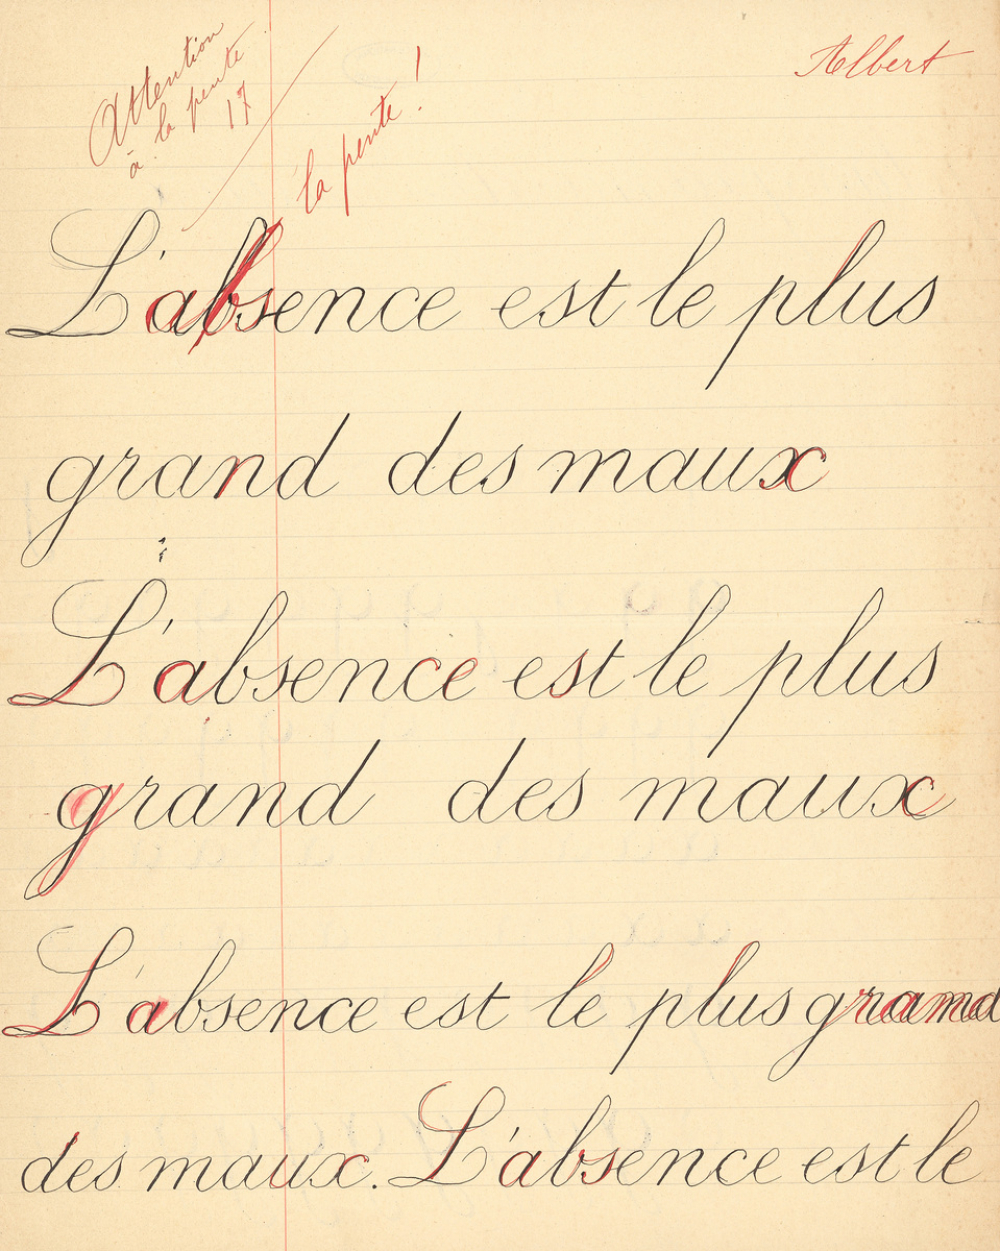 Attention
à la pente
17
Albert
la pente !
L'absence est le plus
grand des maux
L'absence est le plus
grand des maux
L'absence est le plus grand
des maux. L'absence est le